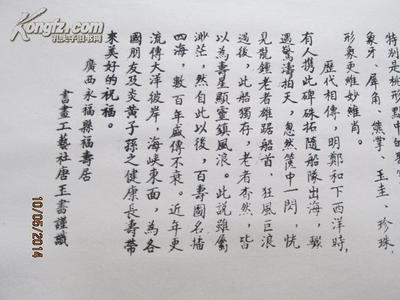 特別是桃形點中的
象牙、犀角、熊掌、玉圭、珍珠、
形象更維妙維肖。
歷代相傳，明鄭和下西洋時，
有人携此碑硃拓隨船隊出海，驟
遇驚濤拍天，忽然篋中一閃，恍
見龍鍾老者雄踞船首，狂風巨浪
過後，此船獨存，老者杳然，皆
以為壽星顯靈鎮風浪。此說雖屬
渺茫，然自此以後，百壽圖名播
四海，數百年盛傳不衰。近年更
流傳大洋彼岸，海峽東面，為各
國朋友及炎黃子孫之健康長壽帶
來美好的祝福。
廣西永福縣福壽居
書畫工藝社唐玉書謹識
Kongfz.com
孔夫子旧书网
10/06/2014